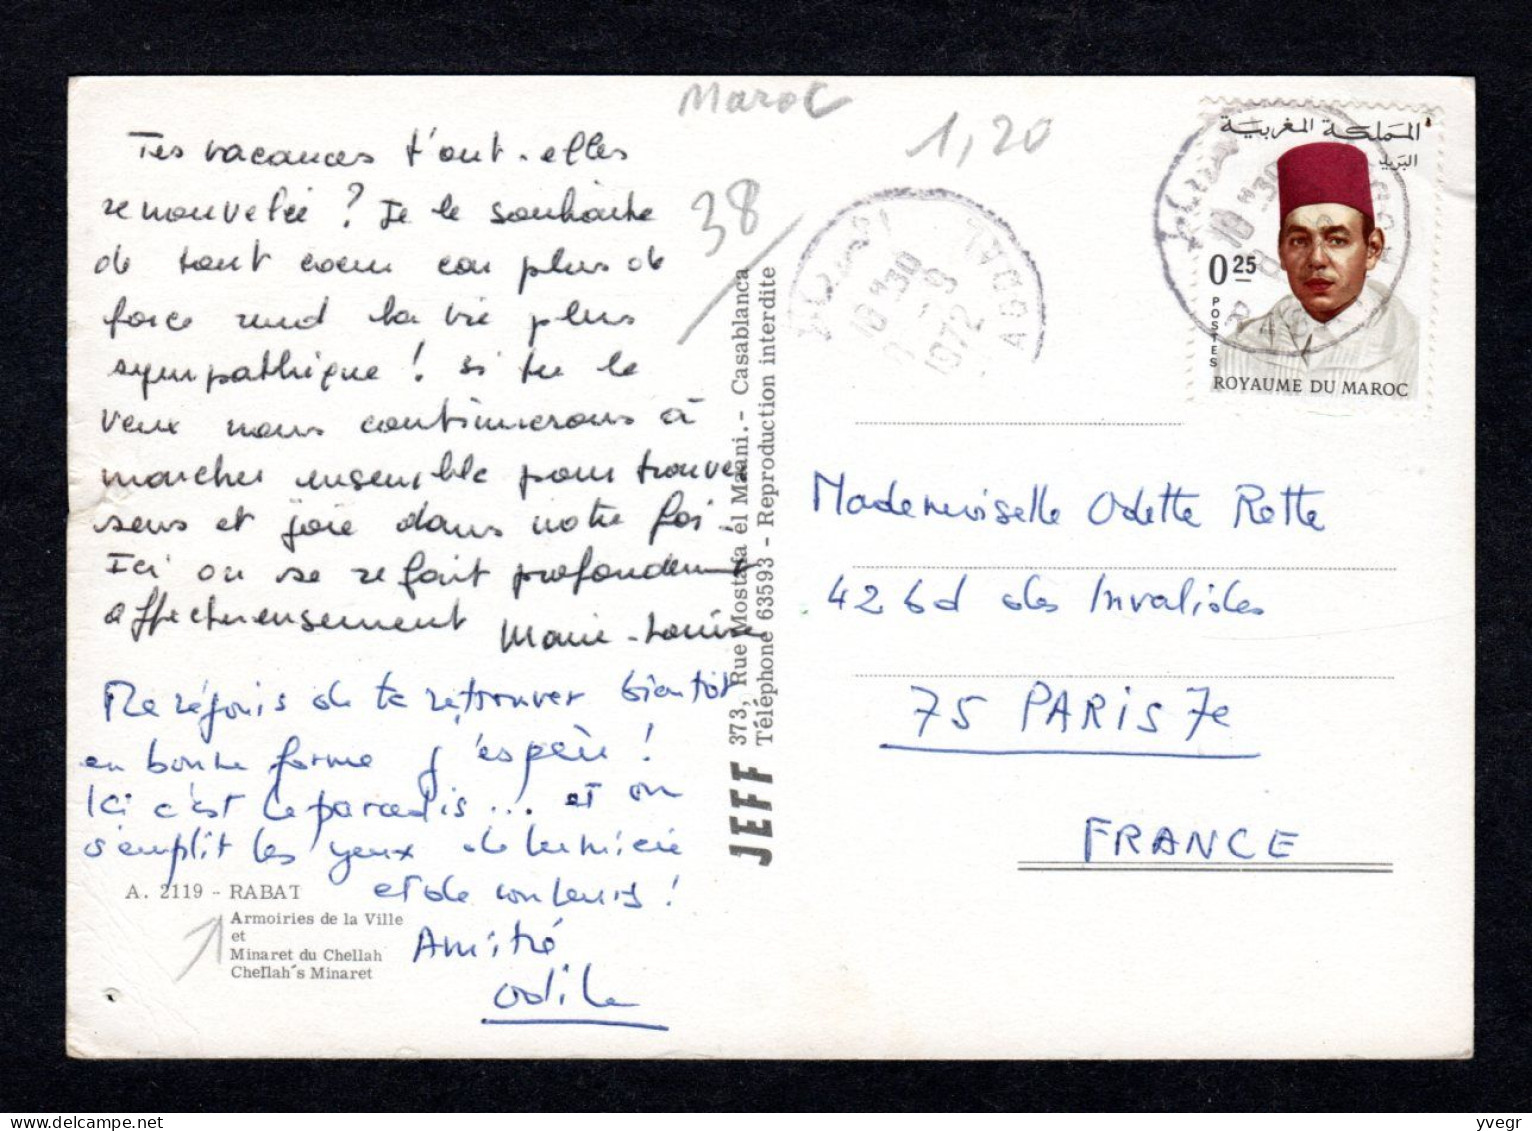 Maroc
1,20
38
Tes vacances t'ont-elles
renouvelée ? Je le souhaite
de tout coeur car plus de
force rend la vie plus
sympathique ! si tu le
veux nous continuerons à
marcher ensemble pour trouver
sens et joie dans notre foi.
Ici on se refait profondement
affectueusement Marie-Louise
Me réjouis de te retrouver bientôt
en bonne forme j'espère !
Ici c'est le paradis... et on
s'emplit les yeux de lumière
et de couleurs !
Amitié
Odile
A. 2119 - RABAT
Armoiries de la Ville
et
Minaret du Chellah
Chellah's Minaret
JEFF 373, Rue Mostafa el Maani. - Casablanca
Téléphone 63593 - Reproduction interdite
10 H30
1972
AGDAL
المملكة المغربية
البريد
10 H30
RABAT
0 25
POSTES
ROYAUME DU MAROC
Mademoiselle Odette Rette
42 bd des Invalides
75 PARIS 7e
FRANCE
yvegr